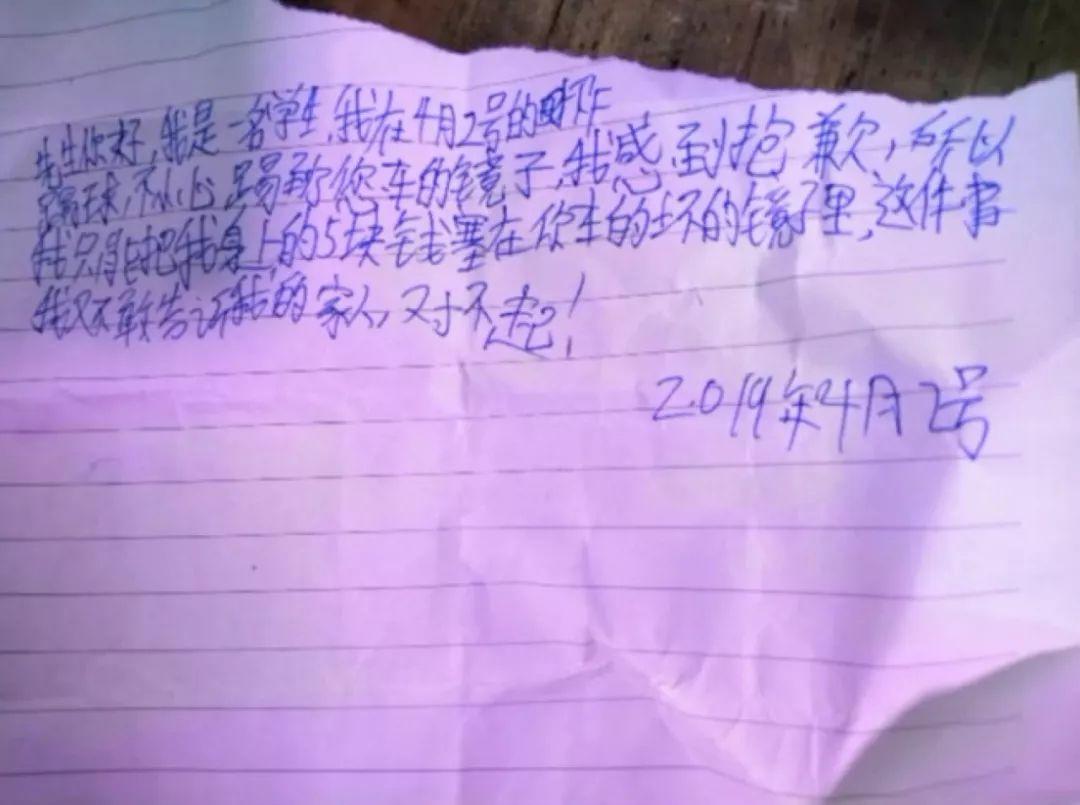 先生你好,我是一名学生,我在4月2号的时候
踢球,不小心踢到您车的镜子,我感到抱歉,所以
我只能把我身上的5块钱塞在你车的坏的镜子里,这件事
我又不敢告诉我的家人,对不起!
2019年4月2号